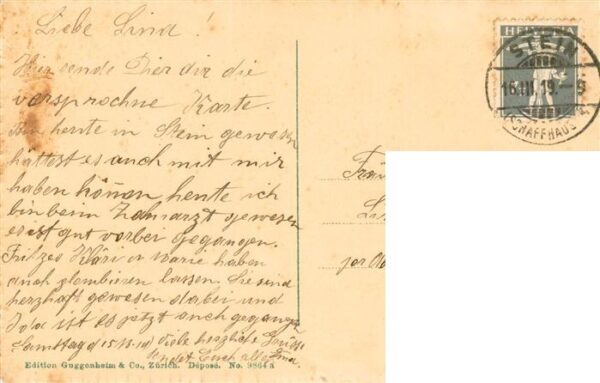 Liebe Lind!
Hier sende Dier dir die
versprochne Karte.
Bin heute in Stein gewesen
hättest es auch mit mir
haben können heute ich
bin beim Zahnarzt gewesen
es ist gut vorbei gegangen.
Fritzes Kläri u Marie haben
auch plombieren lassen. Sie send
herzhaft gewesen dabei und
ist es jetzt auch gegangen
Samstag d 15.III.19 viele herzliche Grüsse
sendet Euch alle
Edition Guggenheim & Co., Zürich. Déposé. No. 9864 a
HELVETIA
STEIN
16.III.19.-9
SCHAFFHAUS